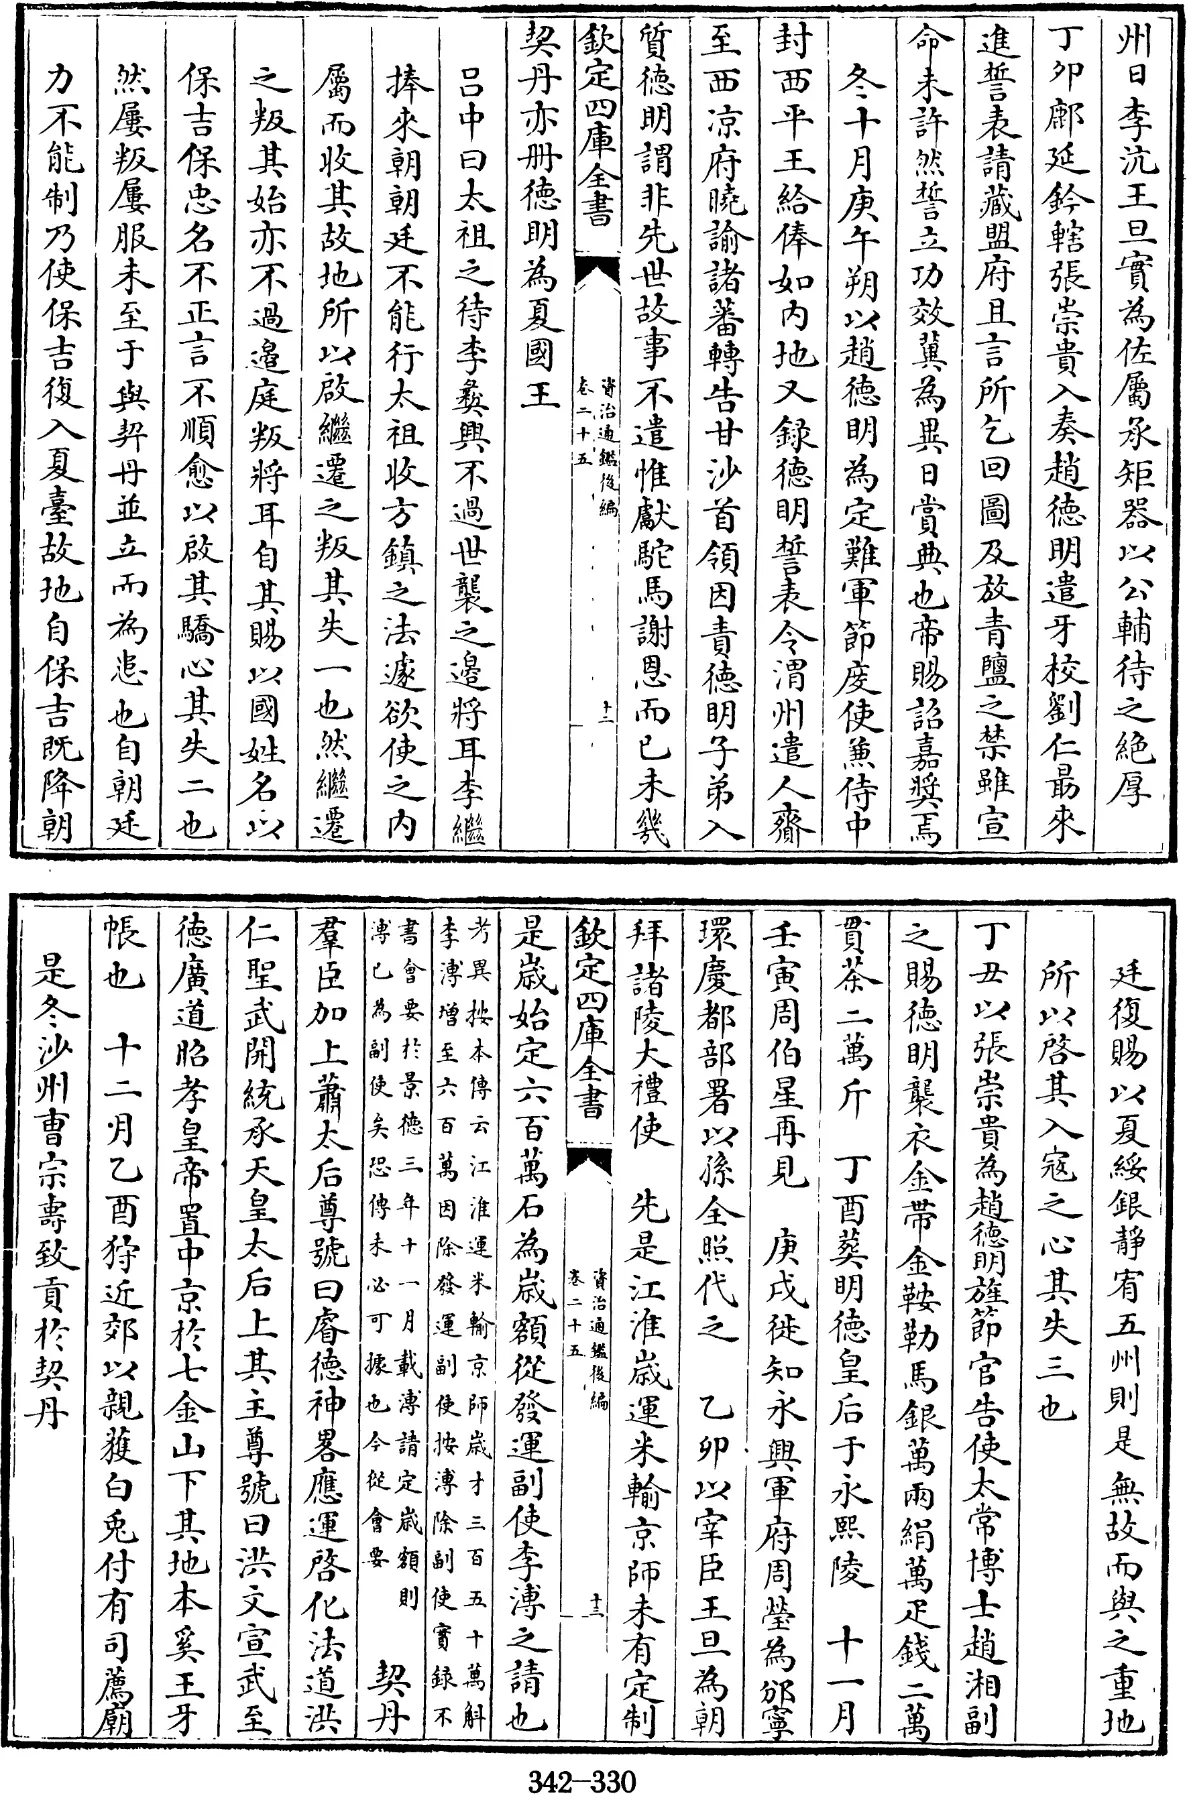 州日李沆王旦實為佐屬承矩器以公輔待之絕厚
丁卯鄜延鈐轄張崇貴入奏趙德明遣牙校劉仁勗來
進誓表請藏盟府且言所乞回圖及放青鹽之禁雖宣
命未許然誓立功效冀為異日賞典也帝賜詔嘉奬焉
冬十月庚午朔以趙德明為定難軍節度使兼侍中
封西平王給俸如内地又録德明誓表令渭州遣人齎
至西涼府曉諭諸蕃轉告甘沙首領因責德明子弟入
質德明謂非先世故事不遣惟獻駝馬謝恩而已未幾
欽定四庫全書
資治通鑑後編
卷二十五
十二
契丹亦册德明為夏國王
吕中曰太祖之待李彝興不過世襲之邉將耳李繼
捧來朝朝廷不能行太祖收方鎮之法遽欲使之内
屬而收其故地所以啟繼遷之叛其失一也然繼遷
之叛其始亦不過邉庭叛將耳自其賜以國姓名以
保吉保忠名不正言不順愈以啟其驕心其失二也
然屢叛屢服未至于與契丹並立而為患也自朝廷
力不能制乃使保吉復入夏臺故地自保吉既降朝
廷復賜以夏綏銀靜宥五州則是無故而與之重地
所以啓其入寇之心其失三也
丁丑以張崇貴為趙德明旌節官告使太常博士趙湘副
之賜德明襲衣金帶金鞍勒馬銀萬兩絹萬疋錢二萬
貫茶二萬斤 丁酉葬明德皇后于永熙陵 十一月
壬寅周伯星再見 庚戌徙知永興軍府周瑩為邠寧
環慶都部署以孫全照代之 乙卯以宰臣王旦為朝
拜諸陵大禮使 先是江淮歲運米輸京師未有定制
欽定四庫全書
資治通鑑後編
卷二十五
十三
是歲始定六百萬石為歲額從發運副使李溥之請也
考異按本傳云江淮運米輸京師歲才三百五十萬斛
李溥增至六百萬因除發運副使按溥除副使實録不
書會要於景德三年十一月載溥請定歲額則
溥已為副使矣恐傳未必可據也今從會要
契丹
羣臣加上蕭太后尊號曰睿德神畧應運啓化法道洪
仁聖武開統承天皇太后上其主尊號曰洪文宣武至
德廣道昭孝皇帝置中京於七金山下其地本奚王牙
帳也 十二月乙酉狩近郊以親獲白兎付有司薦廟
是冬沙州曹宗壽致貢於契丹
342-330